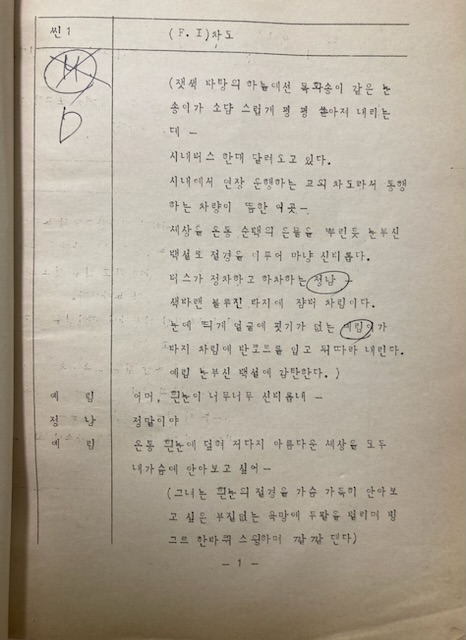 씬 1 (F. I) 차도
N
D
(잿색 바탕의 하늘에선 목화송이 같은 눈
송이가 소담 스럽게 펑 펑 쏟아저 내리는
데 —
시내버스 한대 달려오고 있다.
시내에서 연장 운행하는 교외 차도라서 통행
하는 차량이 뜸한 어곳 —
세상을 온통 순백의 은물을 뿌린듯 눈부신
백설로 절경을 이루어 마냥 신비롭다.
버스가 정차하고 하차하는 정남 —
색바랜 블루진 바지에 잠바 차림이다.
눈에 띄게 얼굴에 핏기가 없는 예림이가
바지 차림에 반코트를 입고 뒤따라 내린다.
예림 눈부신 백설에 감탄한다. )
예 림 어머, 흰눈이 너무너무 신비롭네 —
정 남 정말이야
예 림 온통 흰눈에 덮혀 저다지 아름다운 세상을 모두
내가슴에 안아보고 싶어 —
(그녀는 흰눈의 절경을 가슴 가득히 안아보
고 싶은 부질없는 욕망에 두팔을 벌리며 빙
그르 한바퀴 스윙하며 깔 깔 댄다)
— 1 —